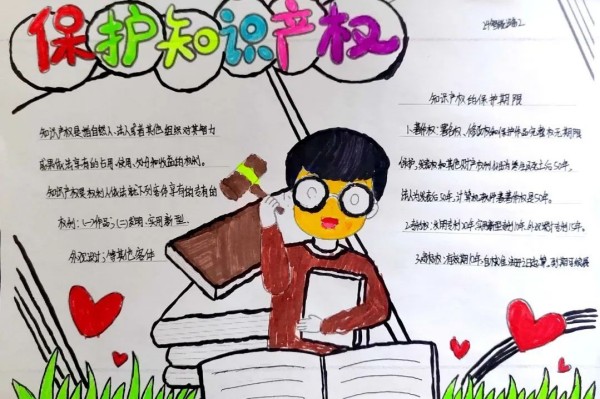 保护知识产权
知识产权是指自然人、法人或者其他组织对其智力
成果依法享有的占有、使用、处分和收益的权利。
知识产权是权利人依法就下列客体享有的专有的
权利:(一)作品;(二)发明、实用新型、
外观设计;
其他客体
知识产权的保护期限
1.著作权:署名权、修改权和保护作品完整权无期限
保护,发表权和其他财产权利
50年,
50年,计算机软件著作权是50年。
2.
发明专利20年,实用新型专利10年,外观设计专利15年。
3.商标权:有效期10年,自核准注册之日起算,到期可续展